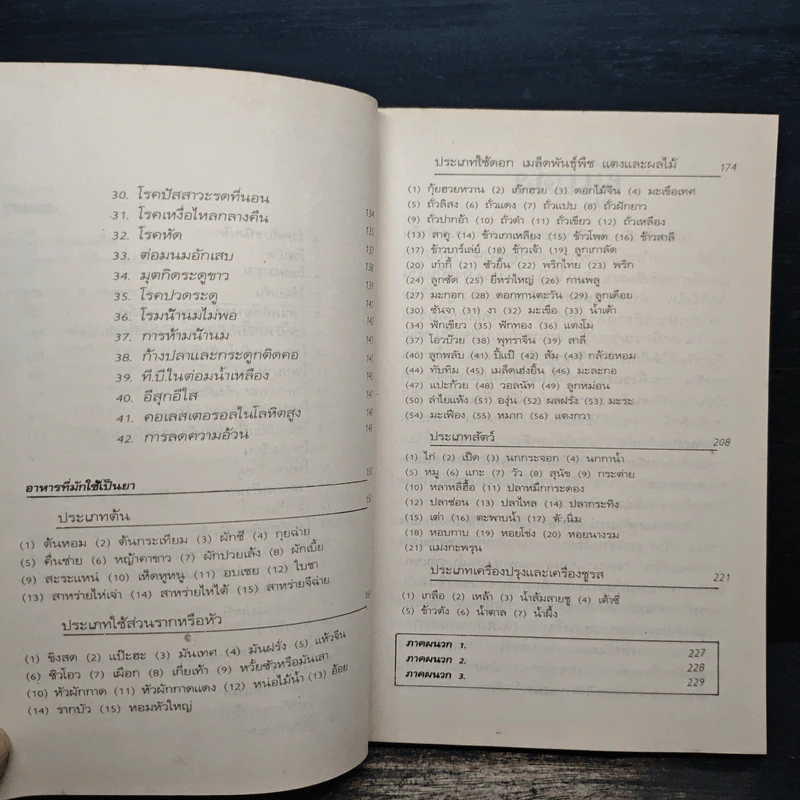 30. โรคปัสสาวะรดที่นอน
31. โรคเหงื่อไหลกลางคืน 134
32. โรคหัด 135
33. ต่อมนมอักเสบ 137
34. มุตกิดระดูขาว 138
35. โรคปวดระดู 139
36. โรมน้ำนมไม่พอ 141
37. การห้ามน้ำนม
38. ก้างปลาและกระดูกติดคอ
39. ที.บี.ในต่อมน้ำเหลือง
40. อีสุกอีใส
41. คอเลสเตอรอลในโลหิตสูง
42. การลดความอ้วน
อาหารที่มักใช้เป็นยา
ประเภทต้น
(1) ต้นหอม (2) ต้นกระเทียม (3) ผักชี (4) กุยฉ่าย
(5) คื่นช่าย (6) หญ้าคาขาว (7) ผักปวยเล้ง (8) ผักเบี้ย
(9) สะระแหน่ (10) เห็ดหูหนู (11) อบเชย (12) ใบชา
(13) สาหร่ายไห่เจ่า (14) สาหร่ายไห่ไต้ (15) สาหร่ายจีฉ่าย
ประเภทใช้ส่วนรากหรือหัว
(1) ขิงสด (2) แป๊ะฮะ (3) มันเทศ (4) มันฝรั่ง (5) แห้วจีน
(6) ชิวโอว (7) เผือก (8) เกี่ยเท้า (9) หวัยซัวหรือมันเสา
(10) หัวผักกาด (11) หัวผักกาดแดง (12) หน่อไม้น้ำ (13) อ้อย
(14) รากบัว (15) หอมหัวใหญ่
ประเภทใช้ดอก เมล็ดพันธุ์พืช แตงและผลไม้ 174
(1) กุ้ยฮวยหวาน (2) เก๊กฮวย (3) ดอกไม้จีน (4) มะเขือเทศ
(5) ถั่วลิสง (6) ถั่วแดง (7) ถั่วแปบ (8) ถั่วฝักยาว
(9) ถั่วปากอ้า (10) ถั่วดำ (11) ถั่วเขียว (12) ถั่วเหลือง
(13) สาคู (14) ข้าวเกาเหลียง (15) ข้าวโพด (16) ข้าวสาลี
(17) ข้าวบาร์เลย์ (18) ข้าวเจ้า (19) ลูกเกาลัด
(20) เก๋ากี้ (21) ซัวยิ้น (22) พริกไทย (23) พริก
(24) ลูกซัด (25) ยี่หร่าใหญ่ (26) กานพลู
(27) มะกอก (28) ดอกทานตะวัน (29) ลูกเดือย
(30) ซันจา (31) งา (32) มะเขือ (33) น้ำเต้า
(34) ฟักเขียว (35) ฟักทอง (36) แตงโม
(37) โอวบ๊วย (38) พุทราจีน (39) สาลี่
(40) ลูกพลับ (41) ปี่แป๋ (42) ส้ม (43) กล้วยหอม
(44) ทับทิม (45) เมล็ดเฮ่งยิ้น (46) มะละกอ
(47) แปะก้วย (48) วอลนัท (49) ลูกหม่อน
(50) ลำไยแห้ง (51) องุ่น (52) ผลฝรั่ง (53) มะระ
(54) มะเฟือง (55) หมาก (56) แตงกวา
ประเภทสัตว์ 208
(1) ไก่ (2) เป็ด (3) นกกระจอก (4) นกกาน้ำ
(5) หมู (6) แกะ (7) วัว (8) สุนัข (9) กระต่าย
(10) หลาหลีฮื้อ (11) ปลาหมึกกระดอง
(12) ปลาช่อน (13) ปลาไหล (14) ปลากระทิง
(15) เต่า (16) ตะพาบน้ำ (17) ตัวนิ่ม
(18) หอบกาบ (19) หอยโข่ง (20) หอยนางรม
(21) แมงกะพรุน
ประเภทเครื่องปรุงและเครื่องชูรส 221
(1) เกลือ (2) เหล้า (3) น้ำส้มสายชู (4) เต้าซี่
(5) ข้าวตัง (6) น้ำตาล (7) น้ำผึ้ง
ภาคผนวก 1. 227
ภาคผนวก 2. 228
ภาคผนวก 3. 229